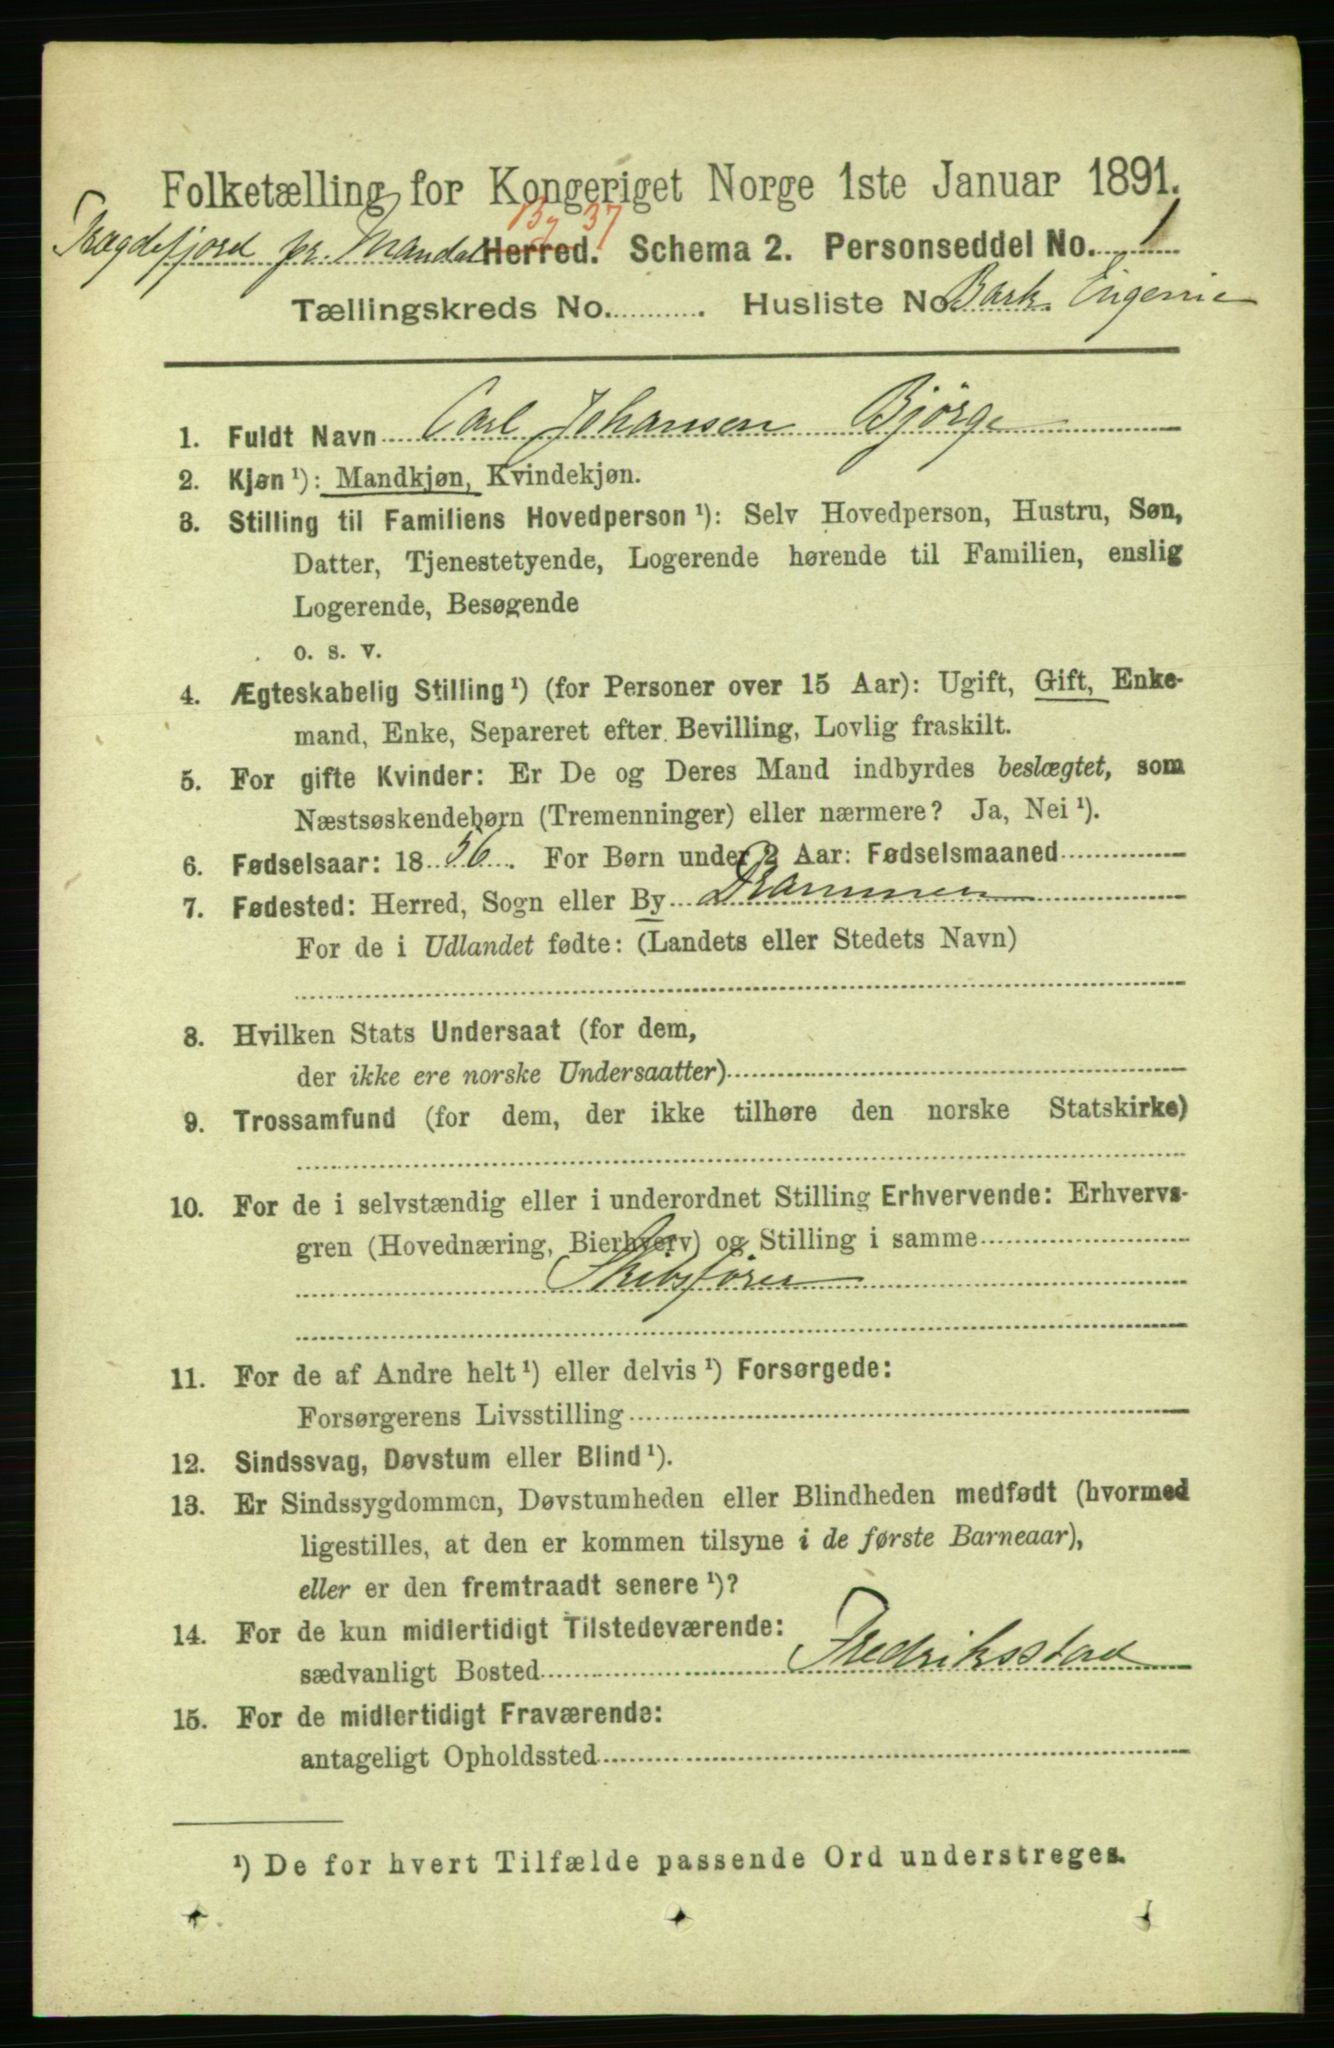 Folketælling for Kongeriget Norge 1ste Januar 1891.
By 37
Skogdefjord pr. Mandal Herred. Schema 2. Personseddel No. 1
Tællingskreds No. ........ Husliste No. Bark. Eugenie
1. Fuldt Navn Carl Johansen Bjørge
2. Kjøn ¹): Mandkjøn, Kvindekjøn.
3. Stilling til Familiens Hovedperson ¹): Selv Hovedperson, Hustru, Søn,
Datter, Tjenestetyende, Logerende hørende til Familien, enslig
Logerende, Besøgende
o. s. v.
4. Ægteskabelig Stilling ¹) (for Personer over 15 Aar): Ugift, Gift, Enke-
mand, Enke, Separeret efter Bevilling, Lovlig fraskilt.
5. For gifte Kvinder: Er De og Deres Mand indbyrdes beslægtet, som
Næstsøskendebørn (Tremenninger) eller nærmere? Ja, Nei ¹).
6. Fødselsaar: 18 56. For Børn under 2 Aar: Fødselsmaaned
7. Fødested: Herred, Sogn eller By Drammen
For de i Udlandet fødte: (Landets eller Stedets Navn)
8. Hvilken Stats Undersaat (for dem,
der ikke ere norske Undersaatter)
9. Trossamfund (for dem, der ikke tilhøre den norske Statskirke)
10. For de i selvstændig eller i underordnet Stilling Erhvervende: Erhvervs-
gren (Hovednæring, Bierhverv) og Stilling i samme
Skibsfører
11. For de af Andre helt ¹) eller delvis ¹) Forsørgede:
Forsørgerens Livsstilling
12. Sindssvag, Døvstum eller Blind ¹).
13. Er Sindssygdommen, Døvstumheden eller Blindheden medfødt (hvormed
ligestilles, at den er kommen tilsyne i de første Barneaar),
eller er den fremtraadt senere ¹)?
14. For de kun midlertidigt Tilstedeværende:
sædvanligt Bosted Fredriksstad
15. For de midlertidigt Fraværende:
antageligt Opholdssted
¹) De for hvert Tilfælde passende Ord understreges.